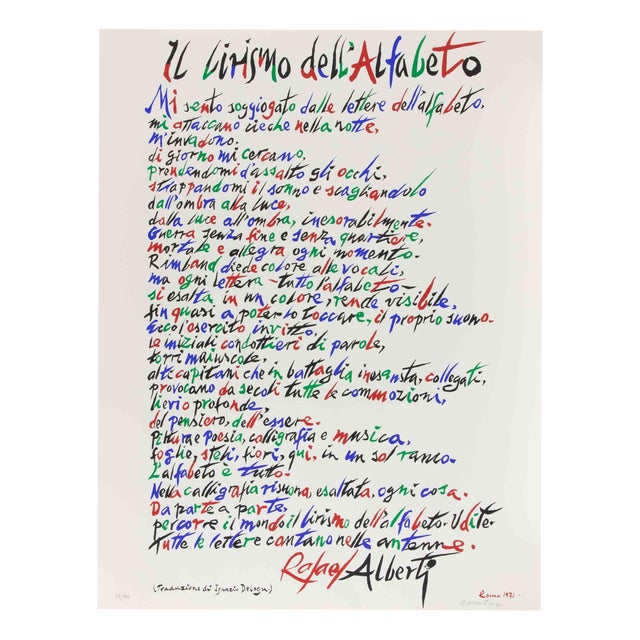 Il lirismo dell'Alfabeto
Mi sento soggiogato dalle lettere dell'alfabeto.
mi attaccano cieche nella notte,
m'invadono.
di giorno mi cercano.
prendendomi d'assalto gli occhi,
strappandomi il sonno e scagliandolo
dall'ombra alla luce,
dalla luce all'ombra, inesorabilmente.
Guerra senza fine e senza quartiere,
mortale e allegra ogni momento.
Rimbaud diede colore alle vocali,
ma ogni lettera - tutto l'alfabeto -
si esalta in un colore, rende visibile,
fin quasi a poterlo toccare, il proprio suono.
Ecco l'esercito invitto,
le iniziali condottieri di parole,
torri maiuscole,
alti capitani che in battaglia inesausta, collegati,
provocano da secoli tutte le commozioni,
lievi o profonde,
del pensiero, dell'essere.
Pittura e Poesia, calligrafia e musica,
foglie, steli, fiori, qui, in un sol ramo.
L'alfabeto è tutto.
Nella calligrafia risuona, esaltata, ogni cosa.
Da parte a parte,
percorre il mondo il lirismo dell'alfabeto. Udite.
Tutte le lettere cantano nelle antenne.
Rafael Alberti
(Traduzione di Ignazio Delogu)
Roma 1972.